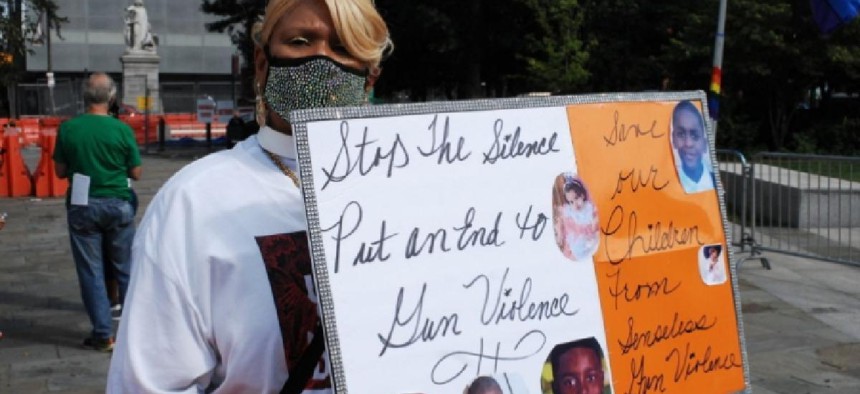 Stop The Silence
Put an End to
Gun Violence
Save
our
Children
From
Senseless
Gun Violence